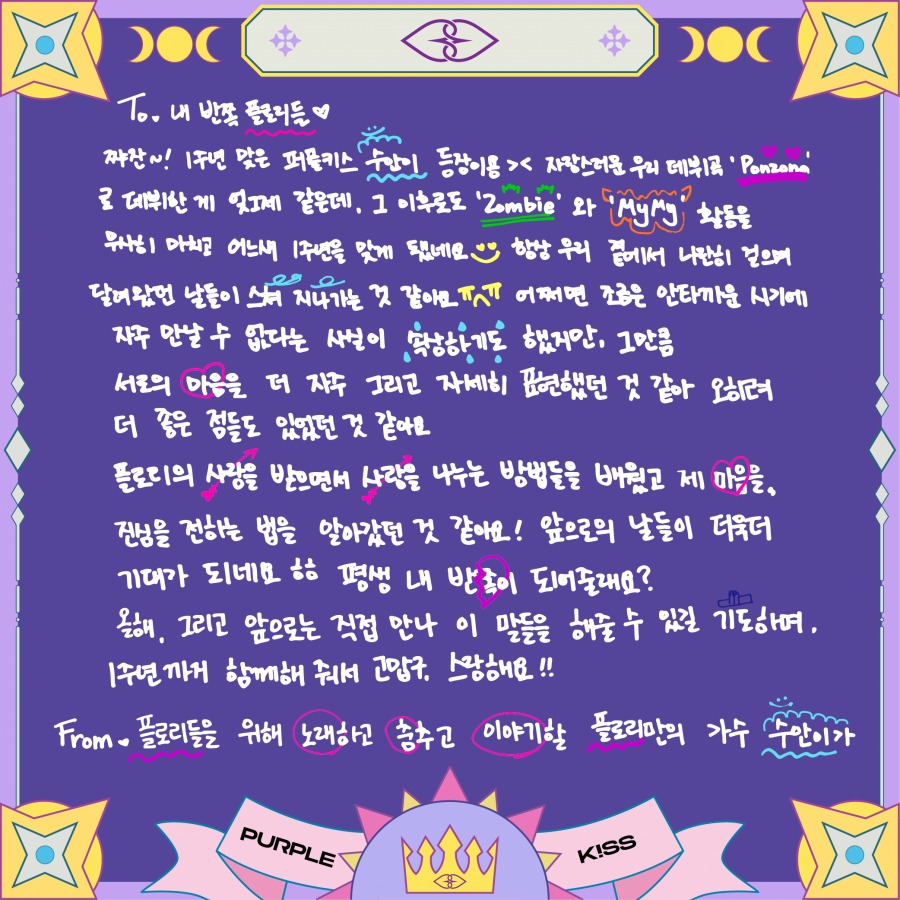 To. 내 반쪽 플로리들♡
쨔잔~! 1주년 맞은 퍼플키스 수안이 등장이용 >< 자랑스러운 우리 데뷔곡 'Ponzona'
로 데뷔한 게 엊그제 같은데, 그 이후로도 'Zombie' 와 'My My' 활동을
무사히 마치고 어느새 1주년을 맞게 됐네요 항상 우리 곁에서 나란히 걸으며
달려왔던 날들이 스쳐 지나가는 것 같아요ㅠㅅㅠ 어쩌면 조금은 안타까운 시기에
자주 만날 수 없다는 사실이 속상하기도 했지만, 그만큼
서로의 마음을 더 자주 그리고 자세히 표현했던 것 같아 오히려
더 좋은 점들도 있었던 것 같아요
플로디의 사랑을 받으면서 사랑을 나누는 방법들을 배웠고 제 마음을,
진심을 전하는 법을 알아갔던 것 같아요! 앞으로의 날들이 더욱더
기대가 되네요 ㅎㅎ 평생 내 반쪽이 되어줄래요?
올해, 그리고 앞으로는 직접 만나 이 말들을 해줄 수 있길 기도하며,
1주년까지 함께해 줘서 고맙구, 스랑해요!!
From. 플로리들을 위해 노래하고 춤추고 이야기할 플로리만의 가수 수안이가
PURPLE K!SS